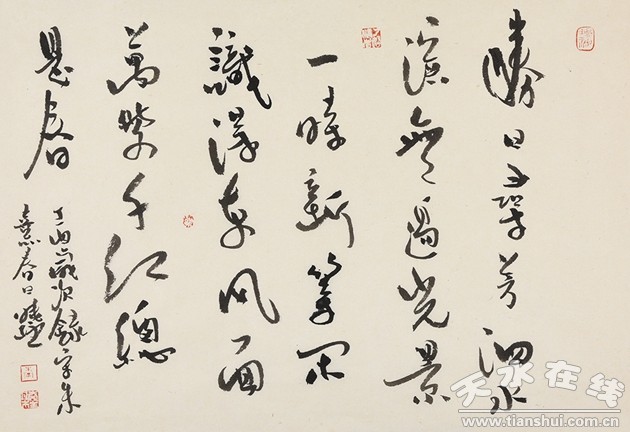 勝日尋芳泗水
濱無邊光景
一時新等閒
識得東風面
萬紫千紅總
是春
丁酉歲次錄宋朱
熹春日
天水在线
www.tianshui.com.cn